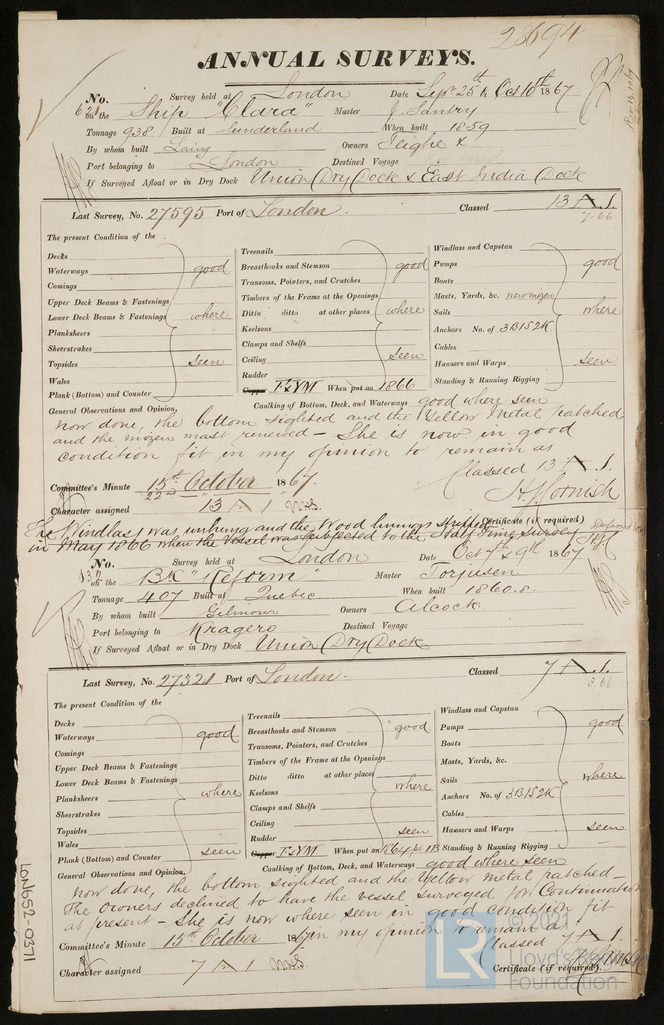 28694
ANNUAL SURVEYS.
No. 621 Survey held at London Date Sept 25th & Oct 10th 1867
on the Ship "Clara" Master J. Santry
Tonnage 938 Built at Sunderland When built 1859
By whom built Laing Owners Teighe &
Port belonging to London Destined Voyage
If Surveyed Afloat or in Dry Dock Union Dry Dock & East India Dock
Last Survey, No. 27595 Port of London. Classed 13 A 1.
7.66
The present Condition of the
Decks
Waterways good
Comings
Upper Deck Beams & Fastenings
Lower Deck Beams & Fastenings where
Planksheers
Sheerstrakes
Topsides seen
Wales
Plank (Bottom) and Counter
Treenails
Breasthooks and Stemson good
Transoms, Pointers, and Crutches
Timbers of the Frame at the Openings
Ditto ditto at other places where
Keelsons
Clamps and Shelfs
Ceiling seen
Rudder
Copper F&YM When put on 1866
Windlass and Capstan
Pumps good
Boats
Masts, Yards, &c. new mizen
Sails where
Anchors No. of 3B1S2K
Cables
Hawsers and Warps seen
Standing & Running Rigging
Caulking of Bottom, Deck, and Waterways good where seen
General Observations and Opinion,
now done, the bottom sighted and the Yellow Metal patched
and the mizen mast renewed - She is now in good
condition fit in my opinion to remain as
Classed 13 A 1.
Committee's Minute 15th October 1867.
22nd
Character assigned 13 A 1
H J Cornish
Certificate (if required)
The Windlass was unhung and the Wood linings stripped
in May 1866 when the Vessel was subjected to the Half Time Survey
No. 137 Survey held at London Date Oct 7th & 9th 1867
on the Bk "Reform" Master Torjusen
Tonnage 407 Built at Quebec When built 1860.8.
By whom built Gilmour Owners Alcock.
Port belonging to Kragero Destined Voyage
If Surveyed Afloat or in Dry Dock Union Dry Dock
Last Survey, No. 27321 Port of London. Classed 7 A 1.
3.66
The present Condition of the
Decks
Waterways good
Comings
Upper Deck Beams & Fastenings
Lower Deck Beams & Fastenings
Planksheers where
Sheerstrakes
Topsides
Wales
Plank (Bottom) and Counter seen
Treenails
Breasthooks and Stemson good
Transoms, Pointers, and Crutches
Timbers of the Frame at the Openings
Ditto ditto at other places
Keelsons where
Clamps and Shelfs
Ceiling
Rudder seen
Copper F&YM When put on
Windlass and Capstan
Pumps good
Boats
Masts, Yards, &c.
Sails where
Anchors No. of 3B1S2K
Cables
Hawsers and Warps seen
Standing & Running Rigging
Caulking of Bottom, Deck, and Waterways good where seen
General Observations and Opinion,
now done, the bottom sighted and the Yellow metal patched -
The owners declined to have the vessel surveyed for Continuation
at present - She is now where seen in good condition fit
in my opinion to remain as
Classed 7 A 1.
Committee's Minute 15th October 1867
Character assigned 7 A 1
Certificate (if required).
LON652-0371
© 2021
LR
Lloyd's Register
Foundation